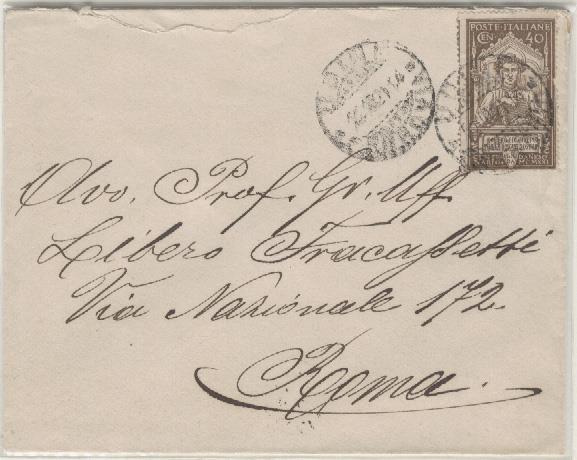 POSTE·ITALIANE
CEN 40
Avv. Prof. Gr. Uff.
Libero Fracassetti
Via Nazionale 172
Roma.